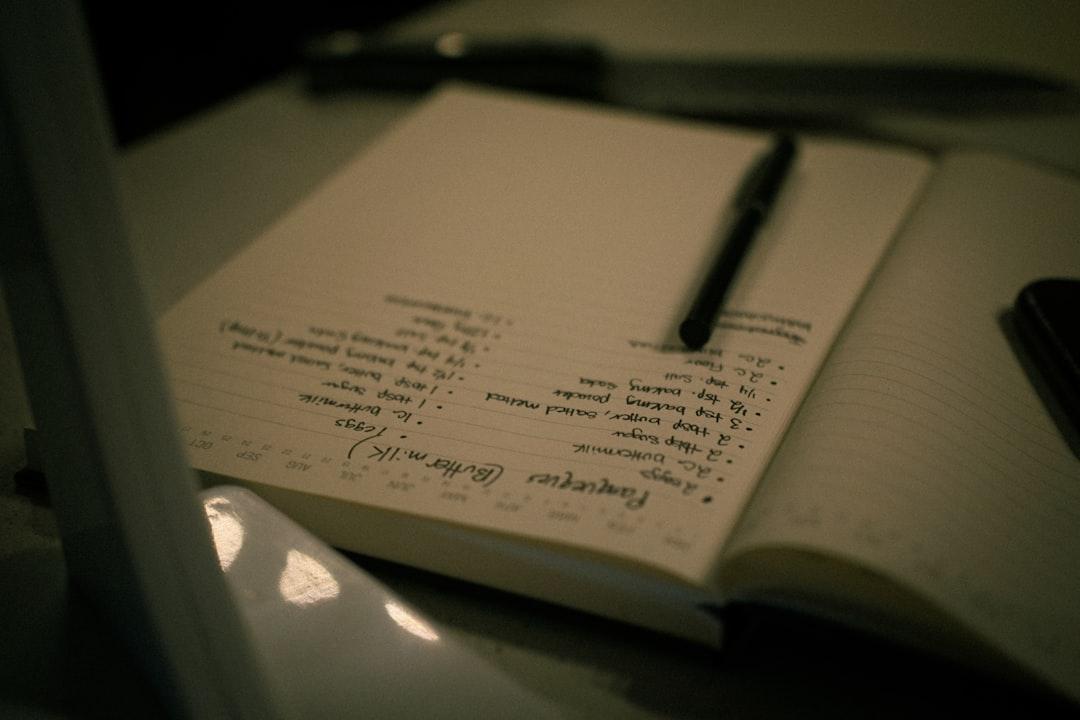 JAN FEB MAR APR MAY JUN JUL AUG SEP OCT
Panqueques (Buttermilk)
• 2 eggs
• 2 c buttermilk
• 2 tbsp sugar
• 2 tbsp butter, salted melted
• 3 tsp baking powder
• 1/2 tsp baking soda
• 1/4 tsp. salt
• 2 c flour
• 1 eggs
• 1c buttermilk
• 1 tbsp sugar
• 1 tbsp butter, salted melted
• 1 1/2 tsp baking powder
• 1/4 tsp baking soda
• 1/8 tsp salt